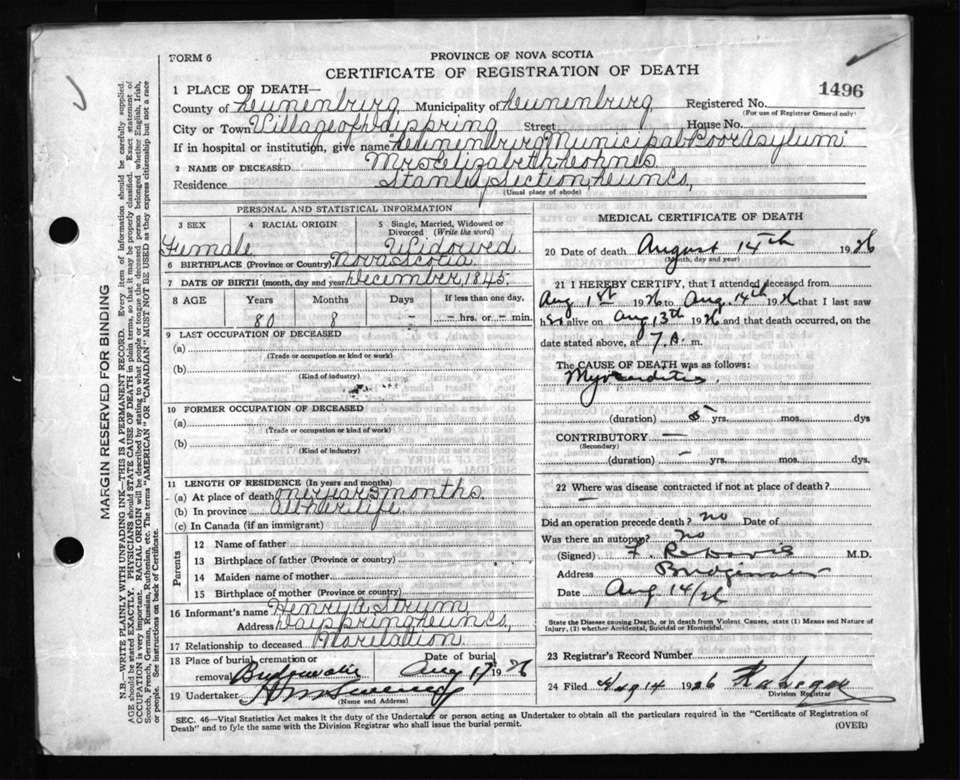 FORM 6
PROVINCE OF NOVA SCOTIA
CERTIFICATE OF REGISTRATION OF DEATH
1496
1 PLACE OF DEATH—
County of Lunenburg Municipality of Lunenburg Registered No.
(For use of Registrar General only)
City or Town Village of Dayspring Street House No.
If in hospital or institution, give name Lunenburg Municipal Poor Asylum
2 NAME OF DECEASED Mrs Elizabeth Lohnes
Residence Stanley Section Lun Co,
(Usual place of abode)
PERSONAL AND STATISTICAL INFORMATION
3 SEX 4 RACIAL ORIGIN 5 Single, Married, Widowed or Divorced (Write the word)
Female Widowed.
6 BIRTHPLACE (Province or Country) Nova Scotia
7 DATE OF BIRTH (month, day and year) December, 1845.
8 AGE Years Months Days If less than one day,
80 8 — — hrs. or — min.
9 LAST OCCUPATION OF DECEASED
(a)
(Trade or occupation or kind or work)
(b)
(Kind of industry)
10 FORMER OCCUPATION OF DECEASED
(a)
(Trade or occupation or kind or work)
(b)
(Kind of industry)
11 LENGTH OF RESIDENCE (In years and months)
(a) At place of death one year 5 months
(b) In province All her life
(c) In Canada (if an immigrant)
Parents
12 Name of father
13 Birthplace of father (Province or country)
14 Maiden name of mother
15 Birthplace of mother (Province or country)
16 Informant's name Henry A. Strum
Address Dayspring Lun Co,
17 Relationship to deceased No relation
18 Place of burial, cremation or removal Bridgewater Date of burial Aug 17 1926
19 Undertaker
(Name and Address)
MEDICAL CERTIFICATE OF DEATH
20 Date of death August 14th 1926
(Month, day and year)
21 I HEREBY CERTIFY, that I attended deceased from
Aug 1st 1926 to Aug. 14th 1926 that I last saw
her alive on Aug 13th 1926 and that death occurred, on the
date stated above, at 7 A. m.
The CAUSE OF DEATH was as follows:
Myocarditis
(duration) 5 yrs. mos. dys
CONTRIBUTORY —
(Secondary)
(duration) — yrs. mos. dys.
22 Where was disease contracted if not at place of death?
—
Did an operation precede death? no Date of
Was there an autopsy? no
(Signed) M.D.
Address Bridgewater
Date Aug 14/26
State the Disease causing Death, or in death from Violent Causes, state (1) Means and Nature of
Injury, (2) whether Accidental, Suicidal or Homicidal.
23 Registrar's Record Number
24 Filed Aug 14 1926
Division Registrar
SEC. 46—Vital Statistics Act makes it the duty of the Undertaker or person acting as Undertaker to obtain all the particulars required in the "Certificate of Registration of
Death" and to fyle the same with the Division Registrar who shall issue the burial permit.
(OVER)
MARGIN RESERVED FOR BINDING
N.B.—WRITE PLAINLY WITH UNFADING INK—THIS IS A PERMANENT RECORD. Every item of information should be carefully supplied.
AGE should be stated EXACTLY. PHYSICIANS should STATE CAUSE OF DEATH in plain terms, so that it may be properly classified. Exact statement of
OCCUPATION is very important. RACIAL ORIGIN will be described by stating to what people or tongue the deceased person belonged whether English, Irish,
Scotch, French, German, Russian, Ruthenian, etc. The terms "AMERICAN" OR "CANADIAN" MUST NOT BE USED as they express citizenship but not a race
or people. See instructions on back of Certificate.